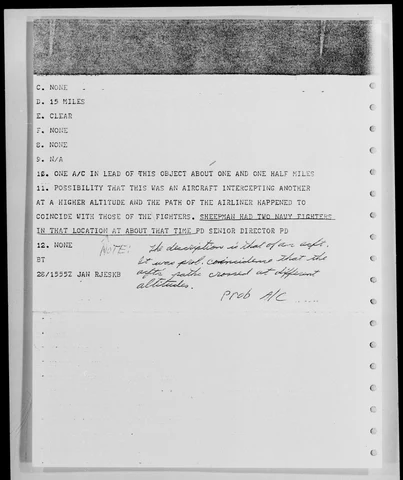 C. NONE
D. 15 MILES
E. CLEAR
F. NONE
8. NONE
9. N/A
10. ONE A/C IN LEAD OF THIS OBJECT ABOUT ONE AND ONE HALF MILES
11. POSSIBILITY THAT THIS WAS AN AIRCRAFT INTERCEPTING ANOTHER
AT A HIGHER ALTITUDE AND THE PATH OF THE AIRLINER HAPPENED TO
COINCIDE WITH THOSE OF THE FIGHTERS. SHEEPMAN HAD TWO NAVY FIGHTERS
IN THAT LOCATION AT ABOUT THAT TIME PD SENIOR DIRECTOR PD
12. NONE
BT
28/1555Z JAN RJESKB
NOTE: The description is that of an acft.
It was prob. coincidence that the
acfts paths crossed at different
altitudes.
Prob A/C .....